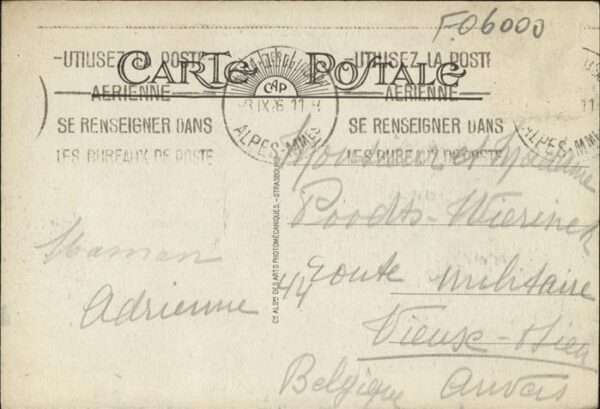 F06000
-UTILISEZ LA POSTE
AERIENNE
SE RENSEIGNER DANS
LES BUREAUX DE POSTE
CARTE POSTALE
CAP
IX 11
ALPES-MMES
-UTILISEZ LA POSTE
AERIENNE
SE RENSEIGNER DANS
LES BUREAUX DE POSTE
11
ALPES-MMES
Cie ALSnne DES ARTS PHOTOMÉCANIQUES. - STRASBOURG
Maman
Adrienne
Monsieur et Madame
Poodts-Wierinck
44 route militaire
Vieux-Dieu
Belgique Anvers